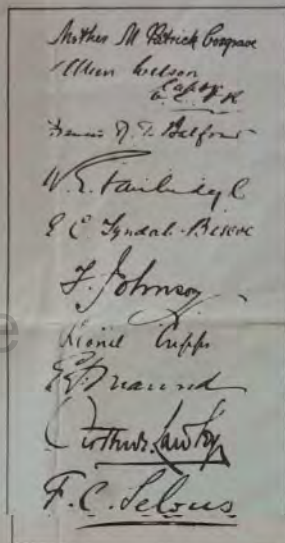 Mother M Patrick Cosgrave
Allan Wilson
Capt
Francis R. T. Balfour
W. E. Fairbridge
E C. Tyndale-Biscoe
F. Johnson
Lionel Cripps
E A Maund
Arthur Lawley
F. C. Selous